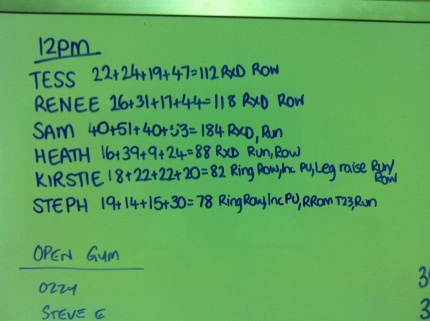 12pm
TESS 22+24+19+47=112 RxD Row
RENEE 26+31+17+44=118 RxD Row
SAM 40+51+40+53=184 RXD, Run
HEATH 16+39+9+24=88 RxD Run, Row
KIRSTIE 18+22+22+20=82 Ring Row, Inc PU, Leg raise Run/
Row
STEPH 19+14+15+30=78 Ring Row, Inc PU, RRom T23, Run
OPEN GYM
OZZY
STEVE E